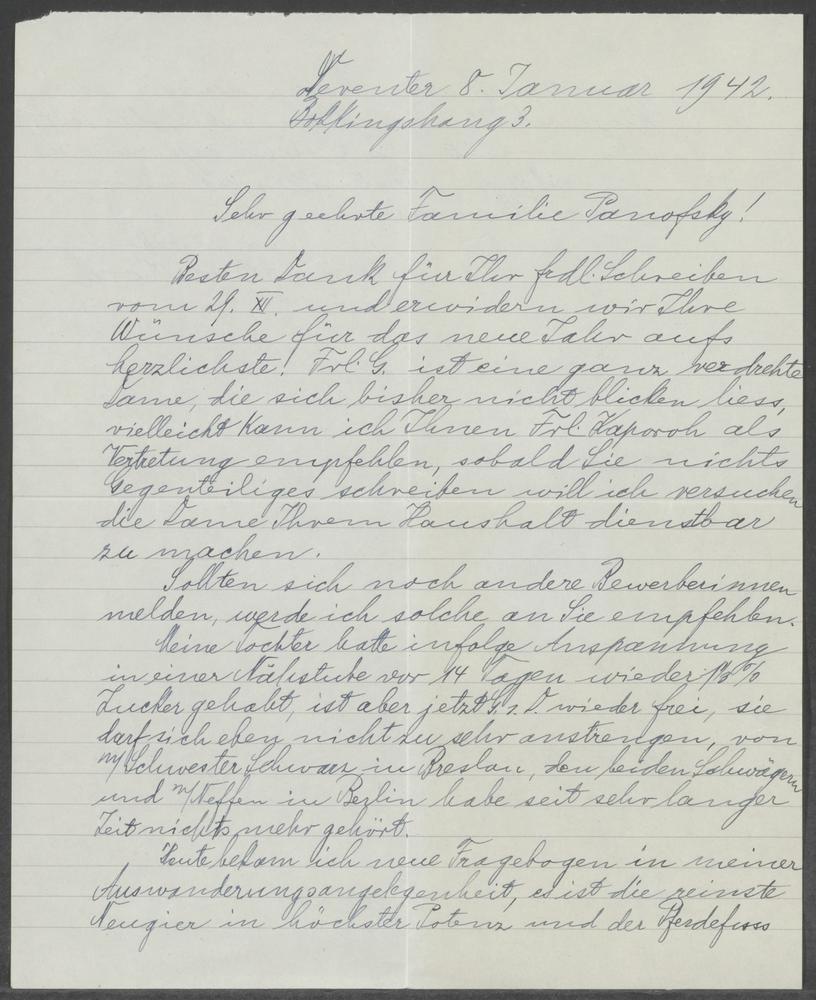 Deventer 8. Januar 1942.
3.
Sehr geehrte Familie Panofsky!
Besten Dank für Ihr frdl. Schreiben
vom 29. XII. und erwidern wir Ihre
Wünsche für das neue Jahr aufs
herzlichste! Frl. G. ist eine ganz verdrehte
Dame, die sich bisher nicht blicken liess,
vielleicht kann ich Ihnen Frl. als
Vertretung empfehlen, sobald Sie nichts
Gegenteiliges schreiben will ich versuchen
die Dame Ihrem Haushalt dienstbar
zu machen.
Sollten sich noch andere Bewerberinnen
melden, werde ich solche an Sie empfehlen.
Meine Tochter hatte infolge Anspannung
in einer Nähstube vor 14 Tagen wieder %
Zucker gehabt, ist aber jetzt G. s. D. wieder frei, sie
darf sich eben nicht zu sehr anstrengen, von
m/Schwester Schwarz in Breslau, den beiden Schwägern
und m/Neffen in Berlin habe seit sehr langer
Zeit nichts mehr gehört.
Heute bekam ich neue Fragebogen in meiner
Auswanderungsangelegenheit, es ist die reinste
Neugier in höchster Potenz und der Pferdefuss